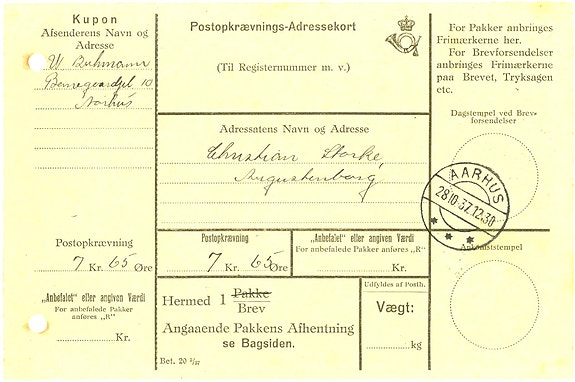 Kupon
Afsenderens Navn og
Adresse
W Buhmann
10
Aarhus
Postopkrævning
7 Kr. 65 Øre
„Anbefalet" eller angiven Værdi
For anbefalede Pakker
anføres „R"
Kr.
Postopkrævnings-Adressekort
(Til Registernummer m. v.)
Adressatens Navn og Adresse
Christian Storke,
Augustenborg
Postopkrævning
7 Kr. 65 Øre
„Anbefalet" eller angiven Værdi
For anbefalede Pakker anføres „R"
Kr.
Hermed 1 Pakke
Brev
Angaaende Pakkens Afhentning
se Bagsiden.
Udfyldes af Postb.
Vægt:
kg
Bet. 20 ²/37
For Pakker anbringes
Frimærkerne her.
For Brevforsendelser
anbringes Frimærkerne
paa Brevet, Tryksagen
etc.
Dagstempel ved Brev-
forsendelser
AARHUS
28.10.37.12.30
Ankomststempel